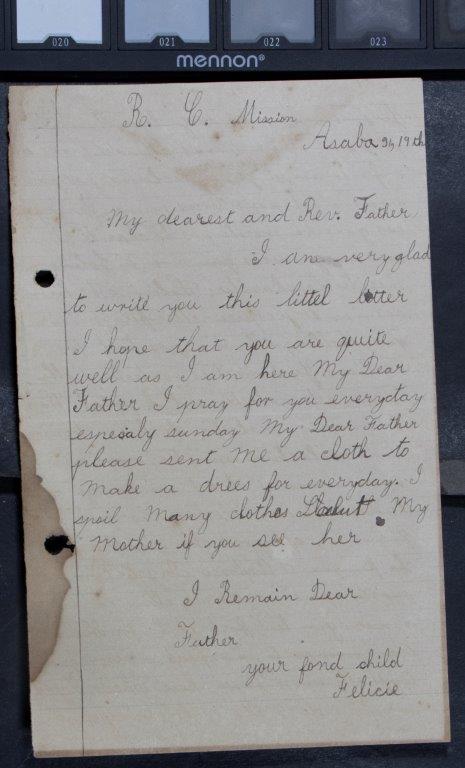 020 021 022 023
mennon®
R. C. Mission
Asaba 9th, 19th
My dearest and Rev. Father
I am very glad
to write you this littel letter
I hope that you are quite
well as I am here My Dear
Father I pray for you everyday
especaly sunday My Dear Father
please sent me a cloth to
make a drees for everyday. I
spoil many clothes Salut My
Mother if you see her
I Remain Dear
Father
your fond child
Felicie